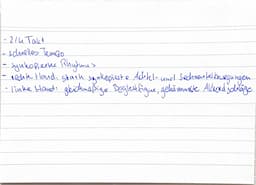 - 2/4 Takt
- schnelles Tempo
- synkopierter Rhythmus
- rechte Hand: stark synkopierte Achtel- und Sechzehntelbewegungen
- linke Hand: gleichmäßige Begleitfigur, gehämmerte Akkordschläge